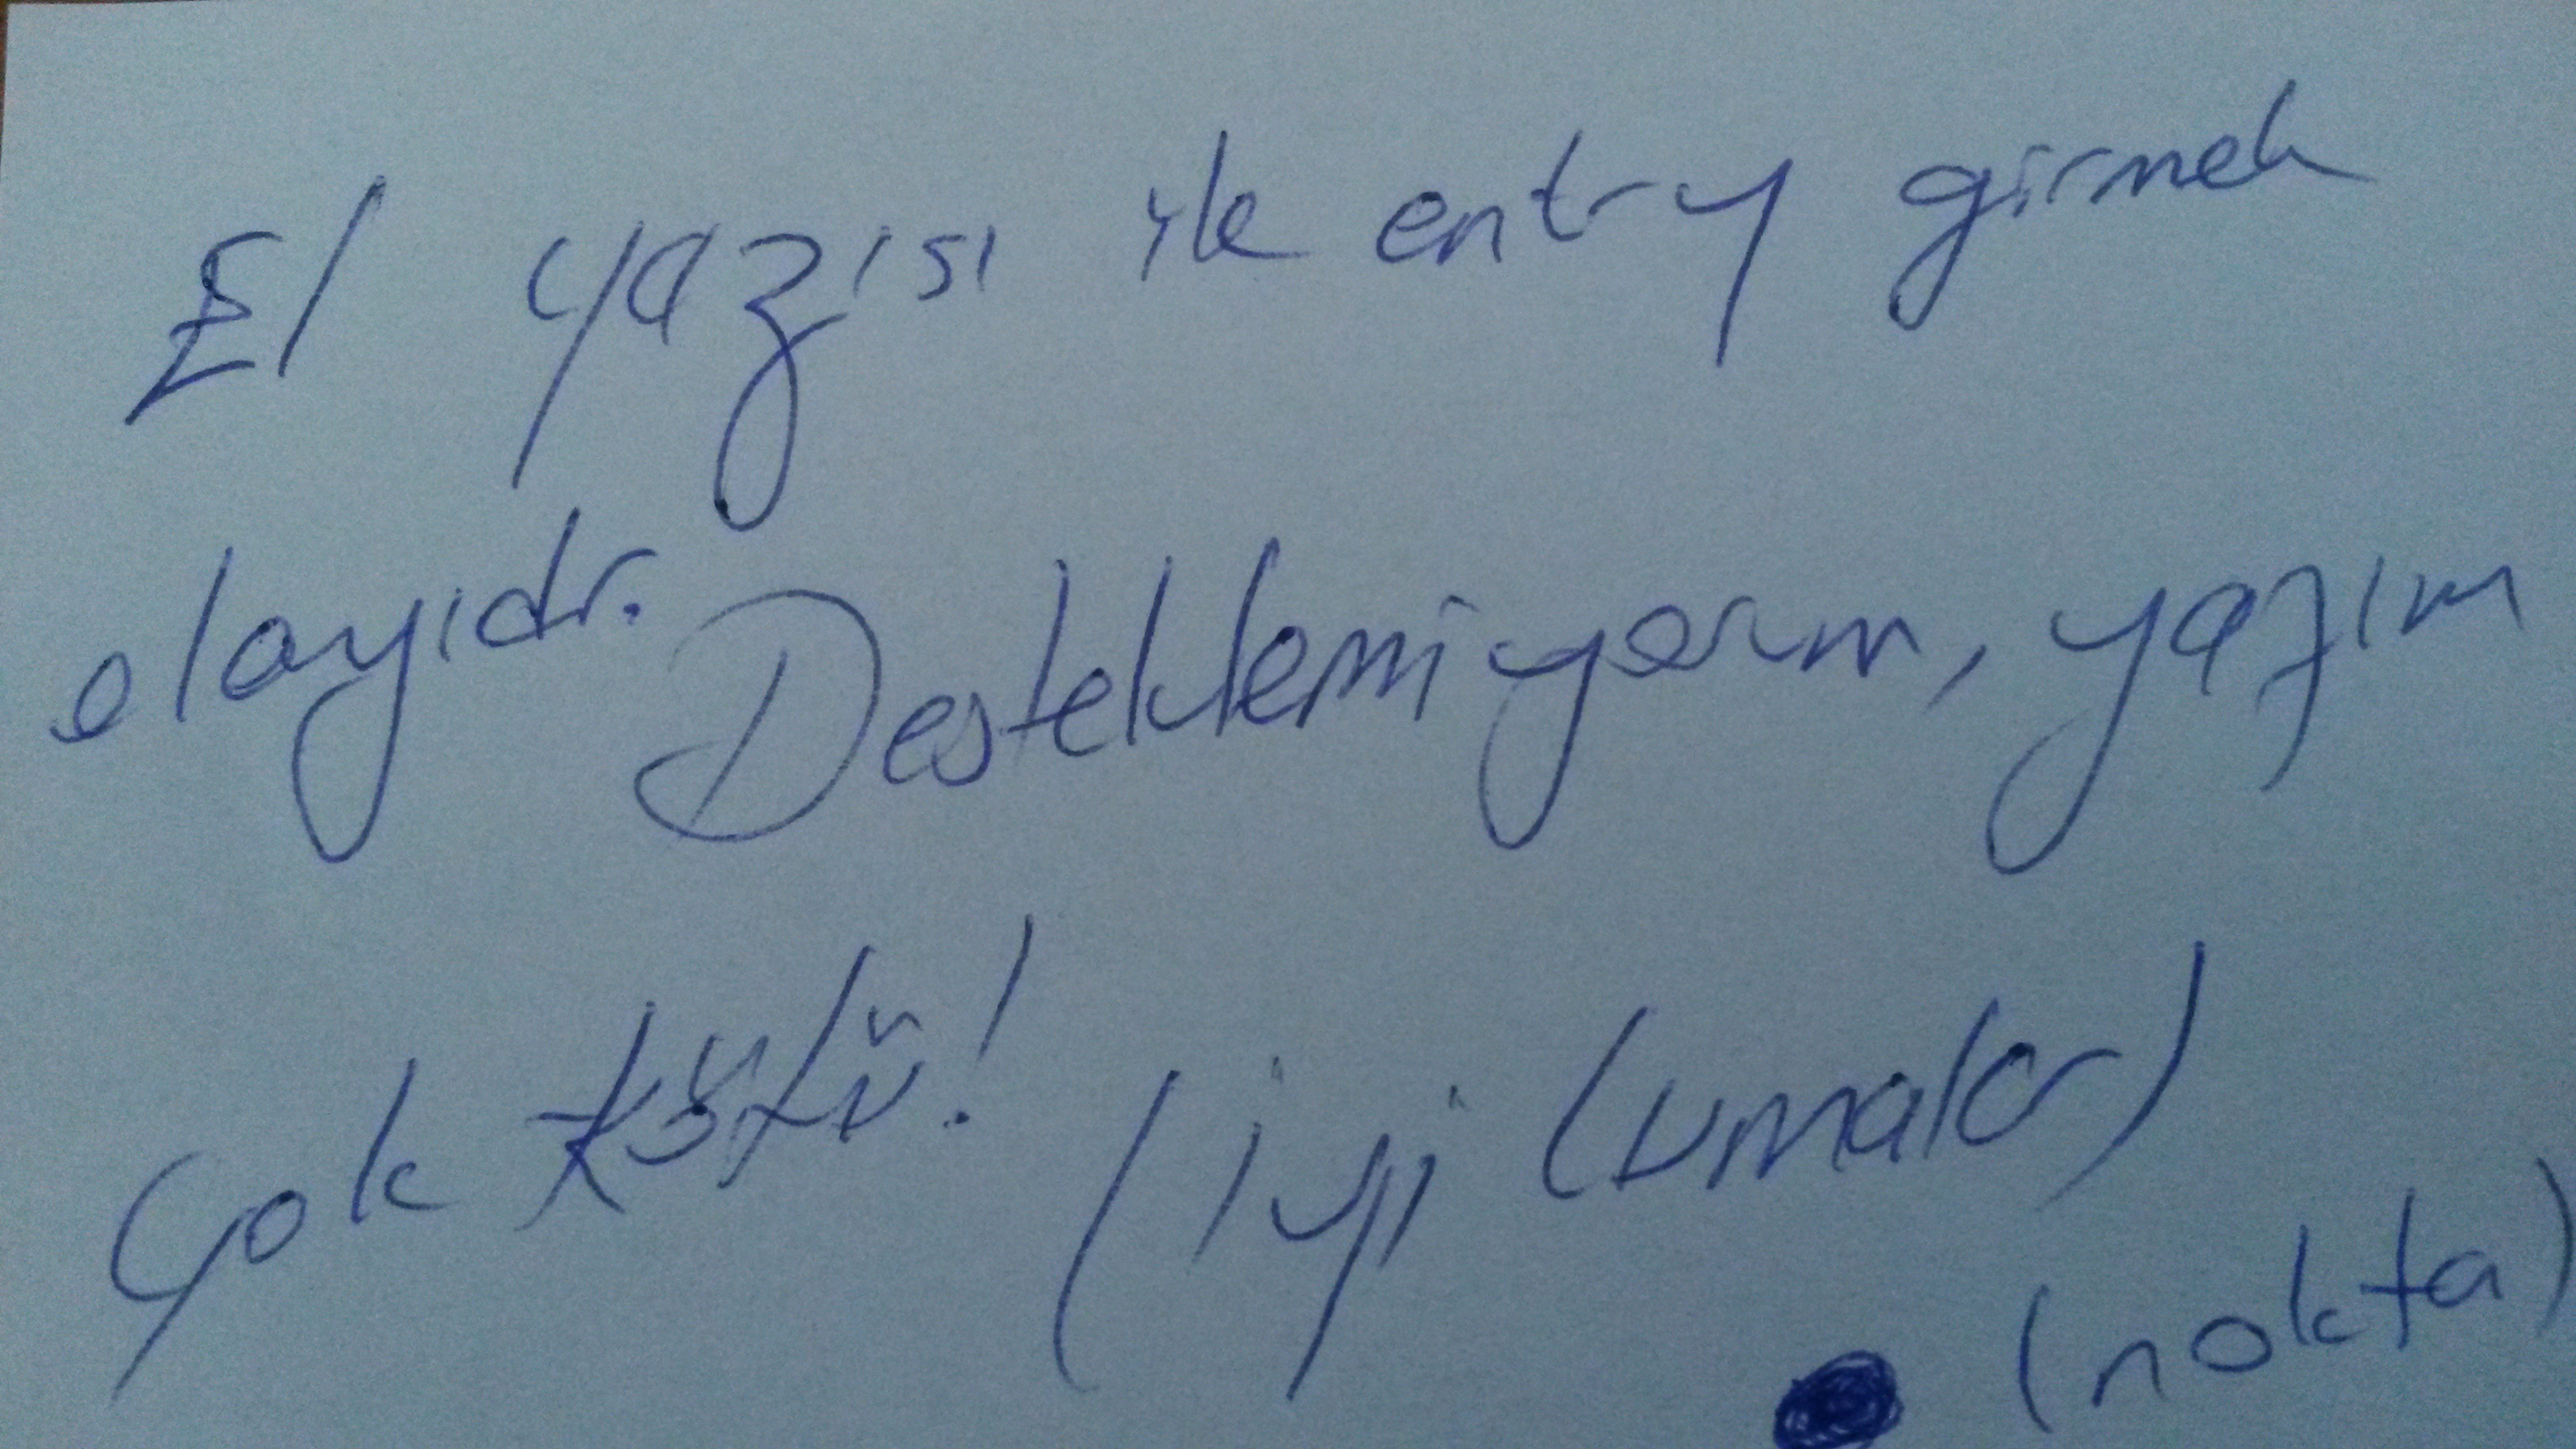 El yazısı ile entry girmek
olayıdır. Desteklemiyorum, yazım
çok kötü! (iyi cumalar)
• (nokta)